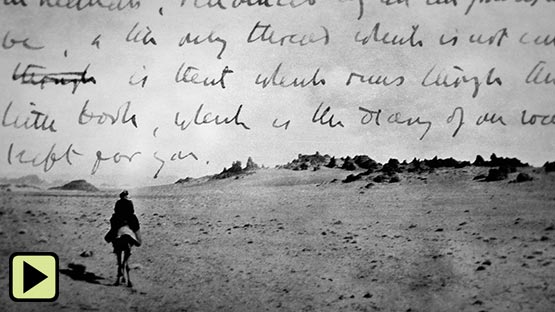 be, & the only thread which is not
though is that which runs through
little book, which is the diary of my
kept for you.